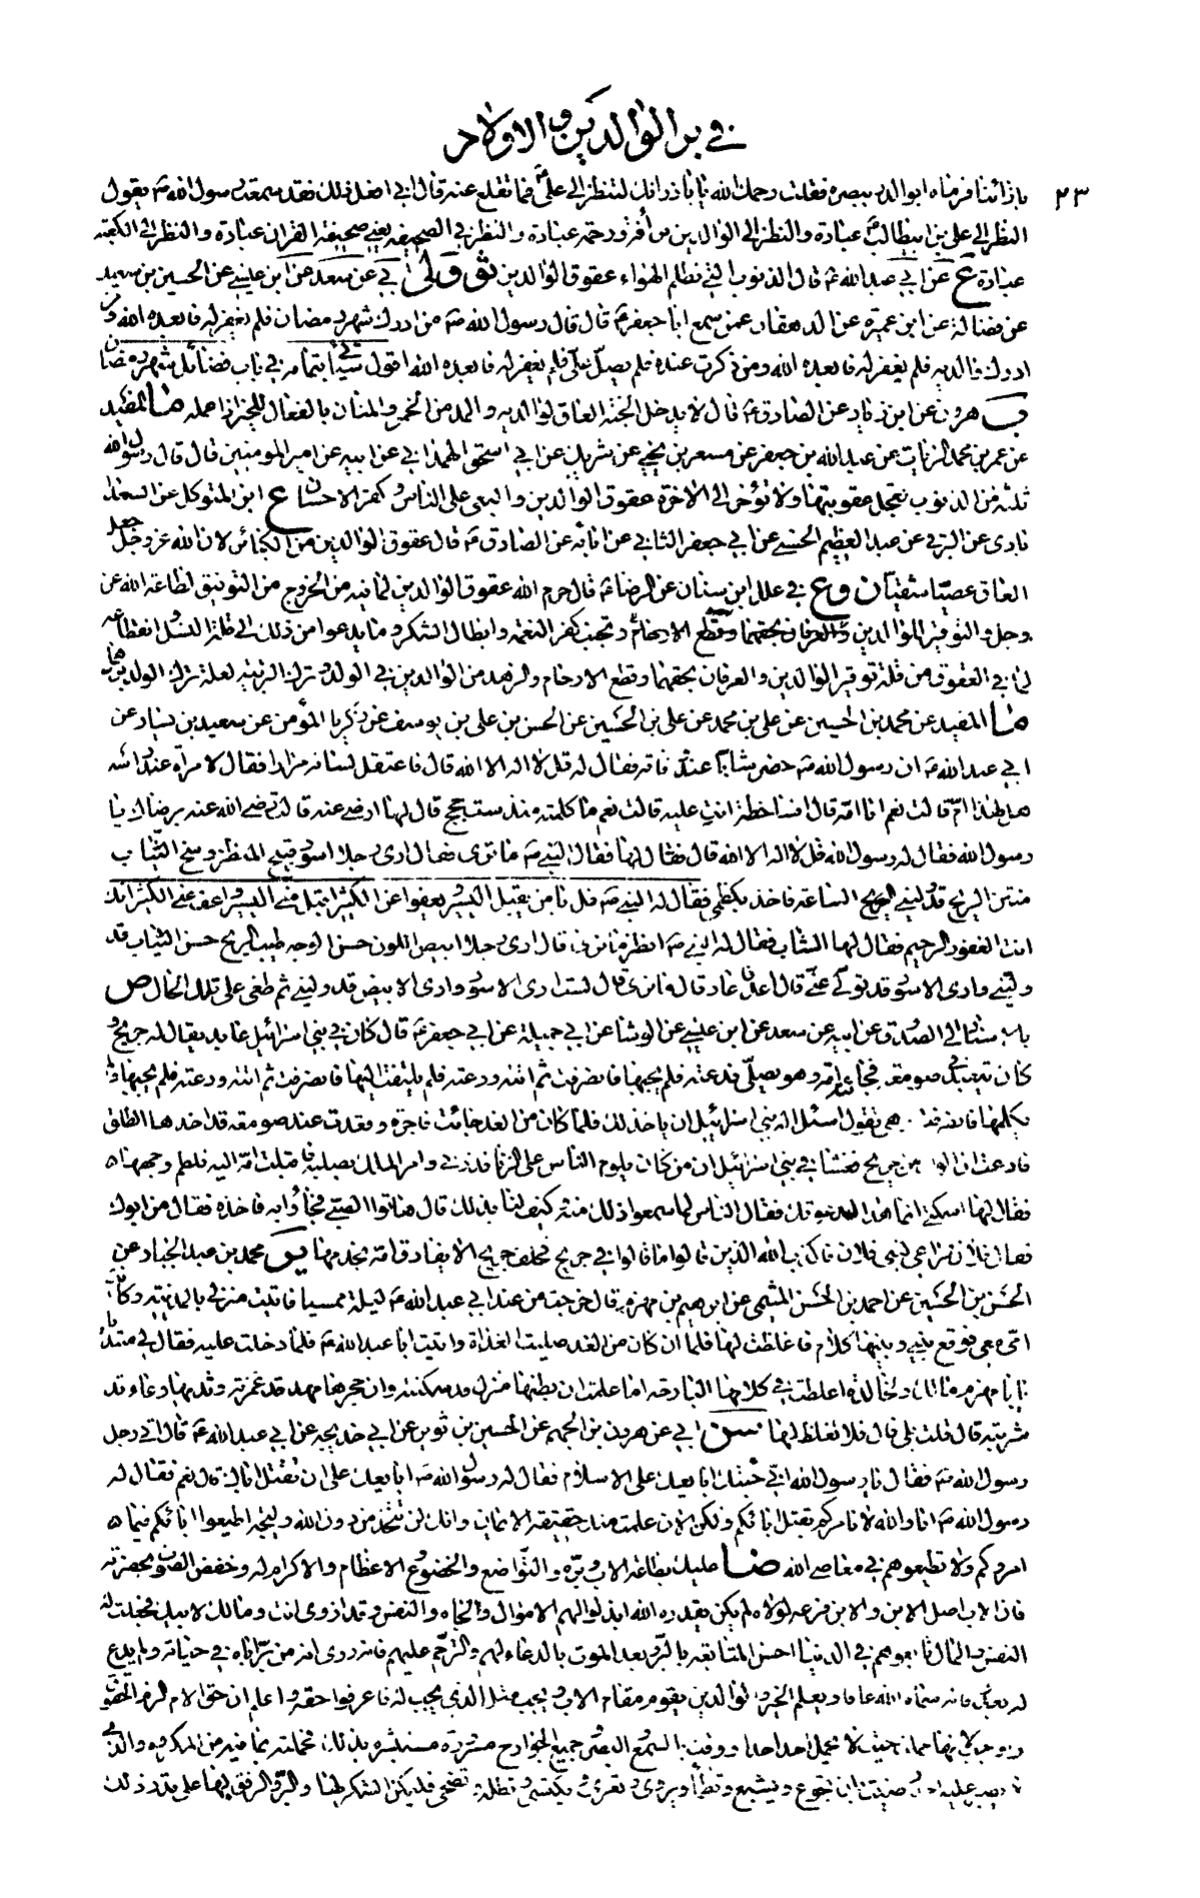 في بر الوالدين والاولاد
٢٣
باذائنا فرماه ابوالذر ببصره فقلت رحمك الله يا باذر انك لتنظر الى علي ع فما تقلع عنه قال اني افعل ذلك فقد سمعت رسول الله ص يقول
النظر الى علي بن ابيطالب ع عبادة والنظر الى الوالدين برأفة ورحمة عبادة والنظر في الصحيفة يعني صحيفة القران عبادة والنظر الى الكعبة
عبادة ع عن ابي عبدالله ع قال الذنوب التي تظلم الهواء عقوق الوالدين ثو لى ابي عن سعد عن ابن عيسى عن الحسين بن سعيد
عن فضالة عن ابن عميرة عن الدهقان عمن سمع ابا جعفر ع قال قال رسول الله ص من ادرك شهر رمضان فلم يغفر له فابعده الله ومن
ادرك والديه فلم يغفر له فابعده الله ومن ذكرت عنده فلم يصل علي فلم يغفر له فابعده الله اقول سيأتي بتمامه في باب فضائل شهر رمضان
ب هرون عن ابن زياد عن الصادق ع قال لا يدخل الجنة العاق لوالديه والمدمن الخمر والمنان بالفعال للخير اذا عمله ما المفيد
عن عمر بن محمد الزيات عن عبيدالله بن جعفر عن مسعر بن يحيى عن شريك عن ابي اسحق الهمداني عن ابيه عن امير المومنين قال قال رسول الله
ثلثة من الذنوب تعجل عقوبتها ولا تؤخر الى الاخرة عقوق الوالدين والبغي على الناس وكفر الاحسان ع ابن المتوكل عن السعد
ابادي عن البرقي عن عبدالعظيم الحسني عن ابي جعفر الثاني عن ابائه عن الصادق ع قال عقوق الوالدين من الكبائر لان الله عزوجل جعل
العاق عصيا شقيا ن وع في علل ابن سنان عن الرضا ع قال حرم الله عقوق الوالدين لما فيه من الخروج من التوفيق لطاعة الله عز
وجل والتوقير للوالدين وتجنب كفر النعمة وابطال الشكر وما يدعو من ذلك الى قلة النسل وانقطاعه
لما في العقوق من قلة توقير الوالدين والعرفان بحقهما وقطع الارحام والزهد من الوالدين في الولد وترك التربية لعلة ترك الولد برهما
ما المفيد عن محمد بن الحسين عن علي بن محمد عن علي بن الحسين عن الحسن بن علي بن يوسف عن زكريا المؤمن عن سعيد بن يسار عن
ابي عبدالله ع ان رسول الله ص حضر شابا عند وفاته فقال له قل لا اله الا الله قال فاعتقل لسانه مرارا فقال لامرأة عند راسه
هل لهذا ام قالت نعم انا امه قال افساخطة انت عليه قالت نعم ما كلمته منذ ست حجج قال لها ارضي عنه قالت رضي الله عنه برضاك يا
رسول الله فقال له رسول الله قل لا اله الا الله قال فقالها فقال النبي ص ما ترى فقال ارى رجلا اسود قبيح المنظر وسخ الثياب
منتن الريح قد وليني الساعة فاخذ بكظمي فقال له النبي ص قل يا من يقبل اليسير ويعفو عن الكثير اقبل مني اليسير واعف عني الكثير انك
انت الغفور الرحيم فقالها الشاب فقال له النبي ص انظر ما ترى قال ارى رجلا ابيض اللون حسن الوجه طيب الريح حسن الثياب قد
وليني وارى الاسود قد تولى عني قال اعد فاعاد قال ما ترى قال لست ارى الاسود وارى الابيض قد وليني ثم طفى على تلك الحال ص
باسناده الى الصدوق عن ابيه عن سعد عن ابن عيسى عن الوشا عن ابي جميلة عن ابي جعفر ع قال كان في بني اسرائيل عابد يقال له جريح و
كان يتعبد في صومعة فجائته امه وهو يصلي فدعته فلم يجبها فانصرفت ثم اتته ودعته فلم يلتفت اليها فانصرفت ثم اتته ودعته فلم يجبها ولم
يكلمها فانصرفت وهي تقول اسئل اله بني اسرائيل ان ياخذك فلما كان من الغد جائت فاجرة وقعدت عند صومعته قد اخذها الطلق
فادعت ان الولد من جريح ففشا في بني اسرائيل ان من كان يلوم الناس على الزنا قد زنى وامر الملك بصلبه فاقبلت امه اليه فلطم وجهها
فقال لها اسكتي انما هذا لدعوتك فقال الناس لما سمعوا ذلك منه وكيف لنا بذلك قال هاتوا الصبي فجاؤا به فاخذه فقال من ابوك
فقال فلان الراعي لبني فلان فاكذب الله الذين قالوا ما قالوا في جريح فحلف جريح الا يفارق امه يخدمها ير محمد بن عبدالجبار عن
الحسن بن الحسين عن احمد بن الحسن الميثمي عن ابرهيم بن مهزم قال خرجت من عند ابي عبدالله ع ليلة ممسيا فاتيت منزلي بالمدينة وكانت
امي معي فوقع بيني وبينها كلام فاغلظت لها فلما ان كان من الغد صليت الغداة واتيت ابا عبدالله ع فلما دخلت عليه فقال لي مبتدئا
يا با مهزم مالك ولخالدة اغلظت في كلامها البارحة اما علمت ان بطنها منزل قد سكنته وان حجرها مهد قد غمزته وثديها وعاء قد
شربته قال قلت بلى قال فلا تغلظ لها سن ابي عن هرون بن الجهم عن الحسين بن ثوير عن ابي خديجة عن ابي عبدالله ع قال اتى رجل
رسول الله ص فقال يا رسول الله اني جئتك ابايعك على الاسلام فقال له رسول الله ص ابايعك على ان تقتل اباك قال نعم فقال له
رسول الله ص انا والله لا نامركم بقتل ابائكم ولكن الان علمت منك حقيقة الايمان وانك لن تتخذ من دون الله وليجة اطيعوا ابائكم فيما
امروكم ولا تطيعوهم في معاصي الله ضا عليك بطاعة الاب وبره والتواضع والخضوع والاعظام والاكرام له وخفض الصوت بحضرته
فان الاب اصل الابن والابن فرعه لولاه لم يكن بقدرة الله ابذلوا لهم الاموال والجاه والنفس وقد اروي انت ومالك لابيك فجعلت له
النفس والمال تابعوهم في الدنيا احسن المتابعة بالبر وبعد الموت بالدعاء لهم والترحم عليهم فانه روي انه من بر اباه في حياته ولم يدع
له بعد وفاته سماه الله عاقا ومعلم الخير والدين يقوم مقام الاب ويجب مثل الذي يجب له فاعرفوا حقه واعلم ان حق الام الزم الحقوق
واوجب لانها حملت حيث لا يحمل احد احدا ووقت بالسمع والبصر وجميع الجوارح مسرورة مستبشرة بذلك فحملته بما فيه من المكروه والذي
لا يصبر عليه احد رضيت بان تجوع ويشبع وتظمأ ويروى وتعرى ويكتسى وتظله وتضحى فليكن الشكر لها والبر والرفق بها على قدر ذلك